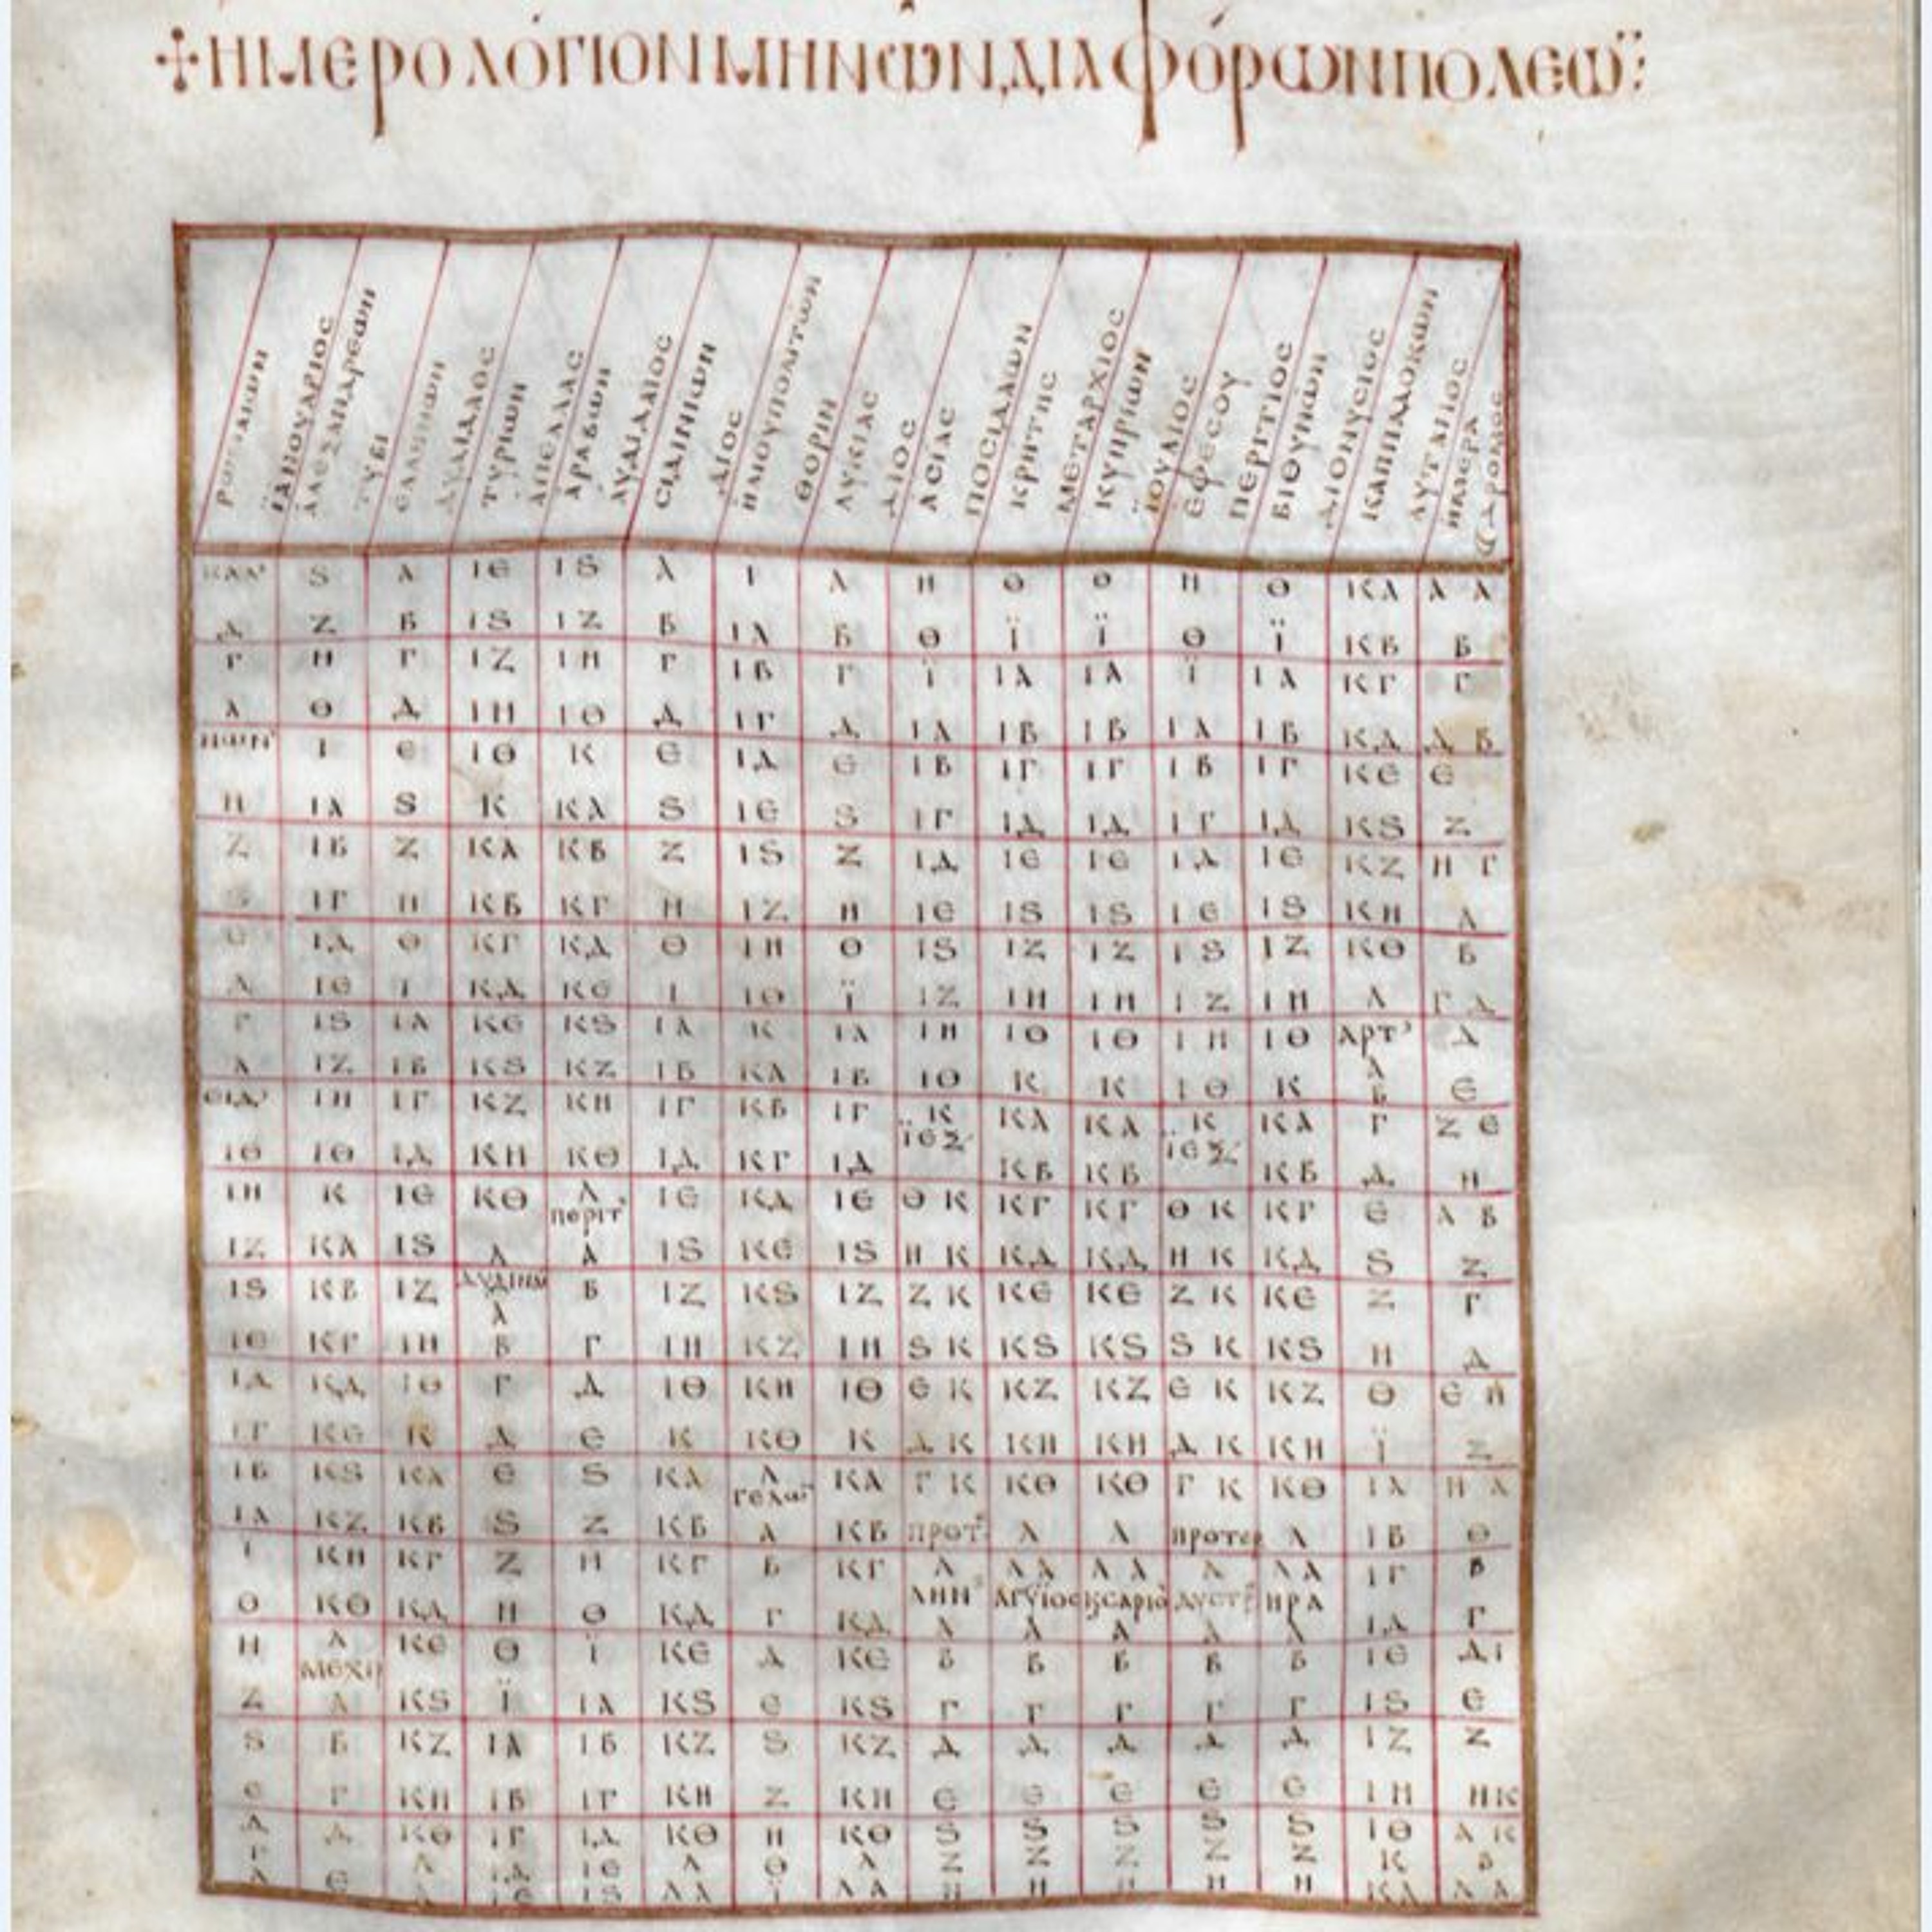 ✢ΗΜΕΡΟΛΌΓΙΟΝΜΗΝΩ͂ΝΔΙΑΦΌΡΩΝΠΟΛΕΩ:
ΡΩΜΑΙΩΝ ΪΑΝΟΥΑΡΙΟΣ ΑΛΕΞΑΝΔΡΕΩΝ ΤΥΒΙ ΕΛΛΗΝΩΝ ΑΥΔΙΝΑΙΟΣ ΤΥΡΙΩΝ ΑΠΕΛΛΑΣ ΑΡΑΒΩΝ ΑΥΔΙΝΑΙΟΣ ΣΙΔΩΝΙΩΝ ΔΙΟΣ ΗΛΙΟΥΠΟΛΙΤΩΝ ΘΟΡΙΝ ΛΥΚΙΑΣ ΔΙΟΣ ΑΣΙΑΣ ΠΟΣΙΔΑΩΝ ΚΡΗΤΗΣ ΜΕΤΑΡΧΙΟΣ ΚΥΠΡΙΩΝ ΪΟΥΛΙΟΣ ΕΦΕΣΟΥ ΠΕΡΙΤΙΟΣ ΒΙΘΥΝΩΝ ΔΙΟΝΥΣΙΟΣ ΚΑΠΠΑΔΟΚΩΝ ΑΥΤΑΝΙΟΣ ΗΜΕΡΑ ΔΡΟΜΟΣ
ΚΑΛ' S Α ΙΕ ΙS Α Ι Α Η Θ Θ Η Θ ΚΑ Α Α
Δ Ζ Β ΙS ΙΖ Β ΙΑ Β Θ Ϊ Ϊ Θ Ϊ ΚΒ Β
Γ Η Γ ΙΖ ΙΗ Γ ΙΒ Γ Ϊ ΙΑ ΙΑ Ϊ ΙΑ ΚΓ Γ
Α Θ Δ ΙΗ ΙΘ Δ ΙΓ Δ ΙΑ ΙΒ ΙΒ ΙΑ ΙΒ ΚΔ Δ Β
ΝΩΝ' Ι Ε ΙΘ Κ Ε ΙΔ Ε ΙΒ ΙΓ ΙΓ ΙΒ ΙΓ ΚΕ Ε
Η ΙΑ S Κ ΚΑ S ΙΕ S ΙΓ ΙΔ ΙΔ ΙΓ ΙΔ ΚS Ζ
Ζ ΙΒ Ζ ΚΑ ΚΒ Ζ ΙS Ζ ΙΔ ΙΕ ΙΕ ΙΔ ΙΕ ΚΖ Η Γ
S ΙΓ Η ΚΒ ΚΓ Η ΙΖ Η ΙΕ ΙS ΙS ΙΕ ΙS ΚΗ Α
Ε ΙΔ Θ ΚΓ ΚΔ Θ ΙΗ Θ ΙS ΙΖ ΙΖ ΙS ΙΖ ΚΘ Β
Δ ΙΕ Ι ΚΔ ΚΕ Ι ΙΘ Ϊ ΙΖ ΙΗ ΙΗ ΙΖ ΙΗ Λ Γ Δ
Γ ΙS ΙΑ ΚΕ ΚS ΙΑ Κ ΙΑ ΙΗ ΙΘ ΙΘ ΙΗ ΙΘ ΑΡΤ' Δ
Α ΙΖ ΙΒ ΚS ΚΖ ΙΒ ΚΑ ΙΒ ΙΘ Κ Κ ΙΘ Κ Α Β Ε
ΕΙΔ' ΙΗ ΙΓ ΚΖ ΚΗ ΙΓ ΚΒ ΙΓ Κ ΚΑ ΚΑ Κ ΚΑ Γ Ζ Ε
ΙΘ ΙΘ ΙΔ ΚΗ ΚΘ ΙΔ ΚΓ ΙΔ ΪΕΞ ΚΒ ΚΒ ΪΕΞ ΚΒ Δ Η
ΙΗ Κ ΙΕ ΚΘ Λ ΠΕΡΙΤ' ΙΕ ΚΔ ΙΕ Θ Κ ΚΓ ΚΓ Θ Κ ΚΓ Ε Α Β
ΙΖ ΚΑ ΙS Λ Α ΙS ΚΕ ΙS Η Κ ΚΔ ΚΔ Η Κ ΚΔ S Ζ
ΙS ΚΒ ΙΖ ΑΥΔΙΝΑΙ Α Β ΙΖ ΚS ΙΖ Ζ Κ ΚΕ ΚΕ Ζ Κ ΚΕ Ζ Γ
ΙΕ ΚΓ ΙΗ Β Γ ΙΗ ΚΖ ΙΗ S Κ ΚS ΚS S Κ ΚS Η Δ
ΙΔ ΚΔ ΙΘ Γ Δ ΙΘ ΚΗ ΙΘ Ε Κ ΚΖ ΚΖ Ε Κ ΚΖ Θ Ε Η
ΙΓ ΚΕ Κ Δ Ε Κ ΚΘ Κ Δ Κ ΚΗ ΚΗ Δ Κ ΚΗ Ϊ Ζ
ΙΒ ΚS ΚΑ Ε S ΚΑ Λ ΓΕΛΩ ΚΑ Γ Κ ΚΘ ΚΘ Γ Κ ΚΘ ΙΑ Η Α
ΙΑ ΚΖ ΚΒ S Ζ ΚΒ Α ΚΒ ΠΡΟΤ Λ Λ ΠΡΟΤΕΡ Λ ΙΒ Θ
Ι ΚΗ ΚΓ Ζ Η ΚΓ Β ΚΓ Λ ΛΑ ΛΑ Λ ΛΑ ΙΓ Β
Θ ΚΘ ΚΔ Η Θ ΚΔ Γ ΚΔ ΛΗΝ Α ΑΓΥΪΟΣ Α ΚΣΑΡΙΟ Α ΔΥΣΤ Α ΗΡΑ Α ΙΔ Γ
Η Λ ΜΕΧΙΡ ΚΕ Θ Ϊ ΚΕ Δ ΚΕ Β Β Β Β Β ΙΕ ΔΙ
Ζ Α ΚS Ϊ ΙΑ ΚS Ε ΚS Γ Γ Γ Γ Γ ΙS Ε
S Β ΚΖ ΙΑ ΙΒ ΚΖ S ΚΖ Δ Δ Δ Δ Δ ΙΖ Ζ
Ε Γ ΚΗ ΙΒ ΙΓ ΚΗ Ζ ΚΗ Ε Ε Ε Ε Ε ΙΗ ΗΚ
Δ Δ ΚΘ ΙΓ ΙΔ ΚΘ Η ΚΘ S S S S S ΙΘ Α Κ
Γ Λ ΙΔ ΙΕ Λ Θ Λ Ζ Ζ Ζ Ζ Ζ Κ Β
Α Ε ΙΕ ΙS ΛΑ Ϊ ΛΑ Η Η Η Η Η ΚΑ Λ Α